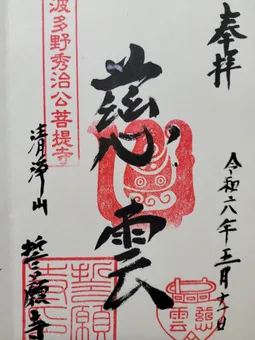 奉拝
令和六年
月
日
慈雲
波多野秀治公菩提寺
清浄山
誓願寺
誓願
寺印
慈
雲